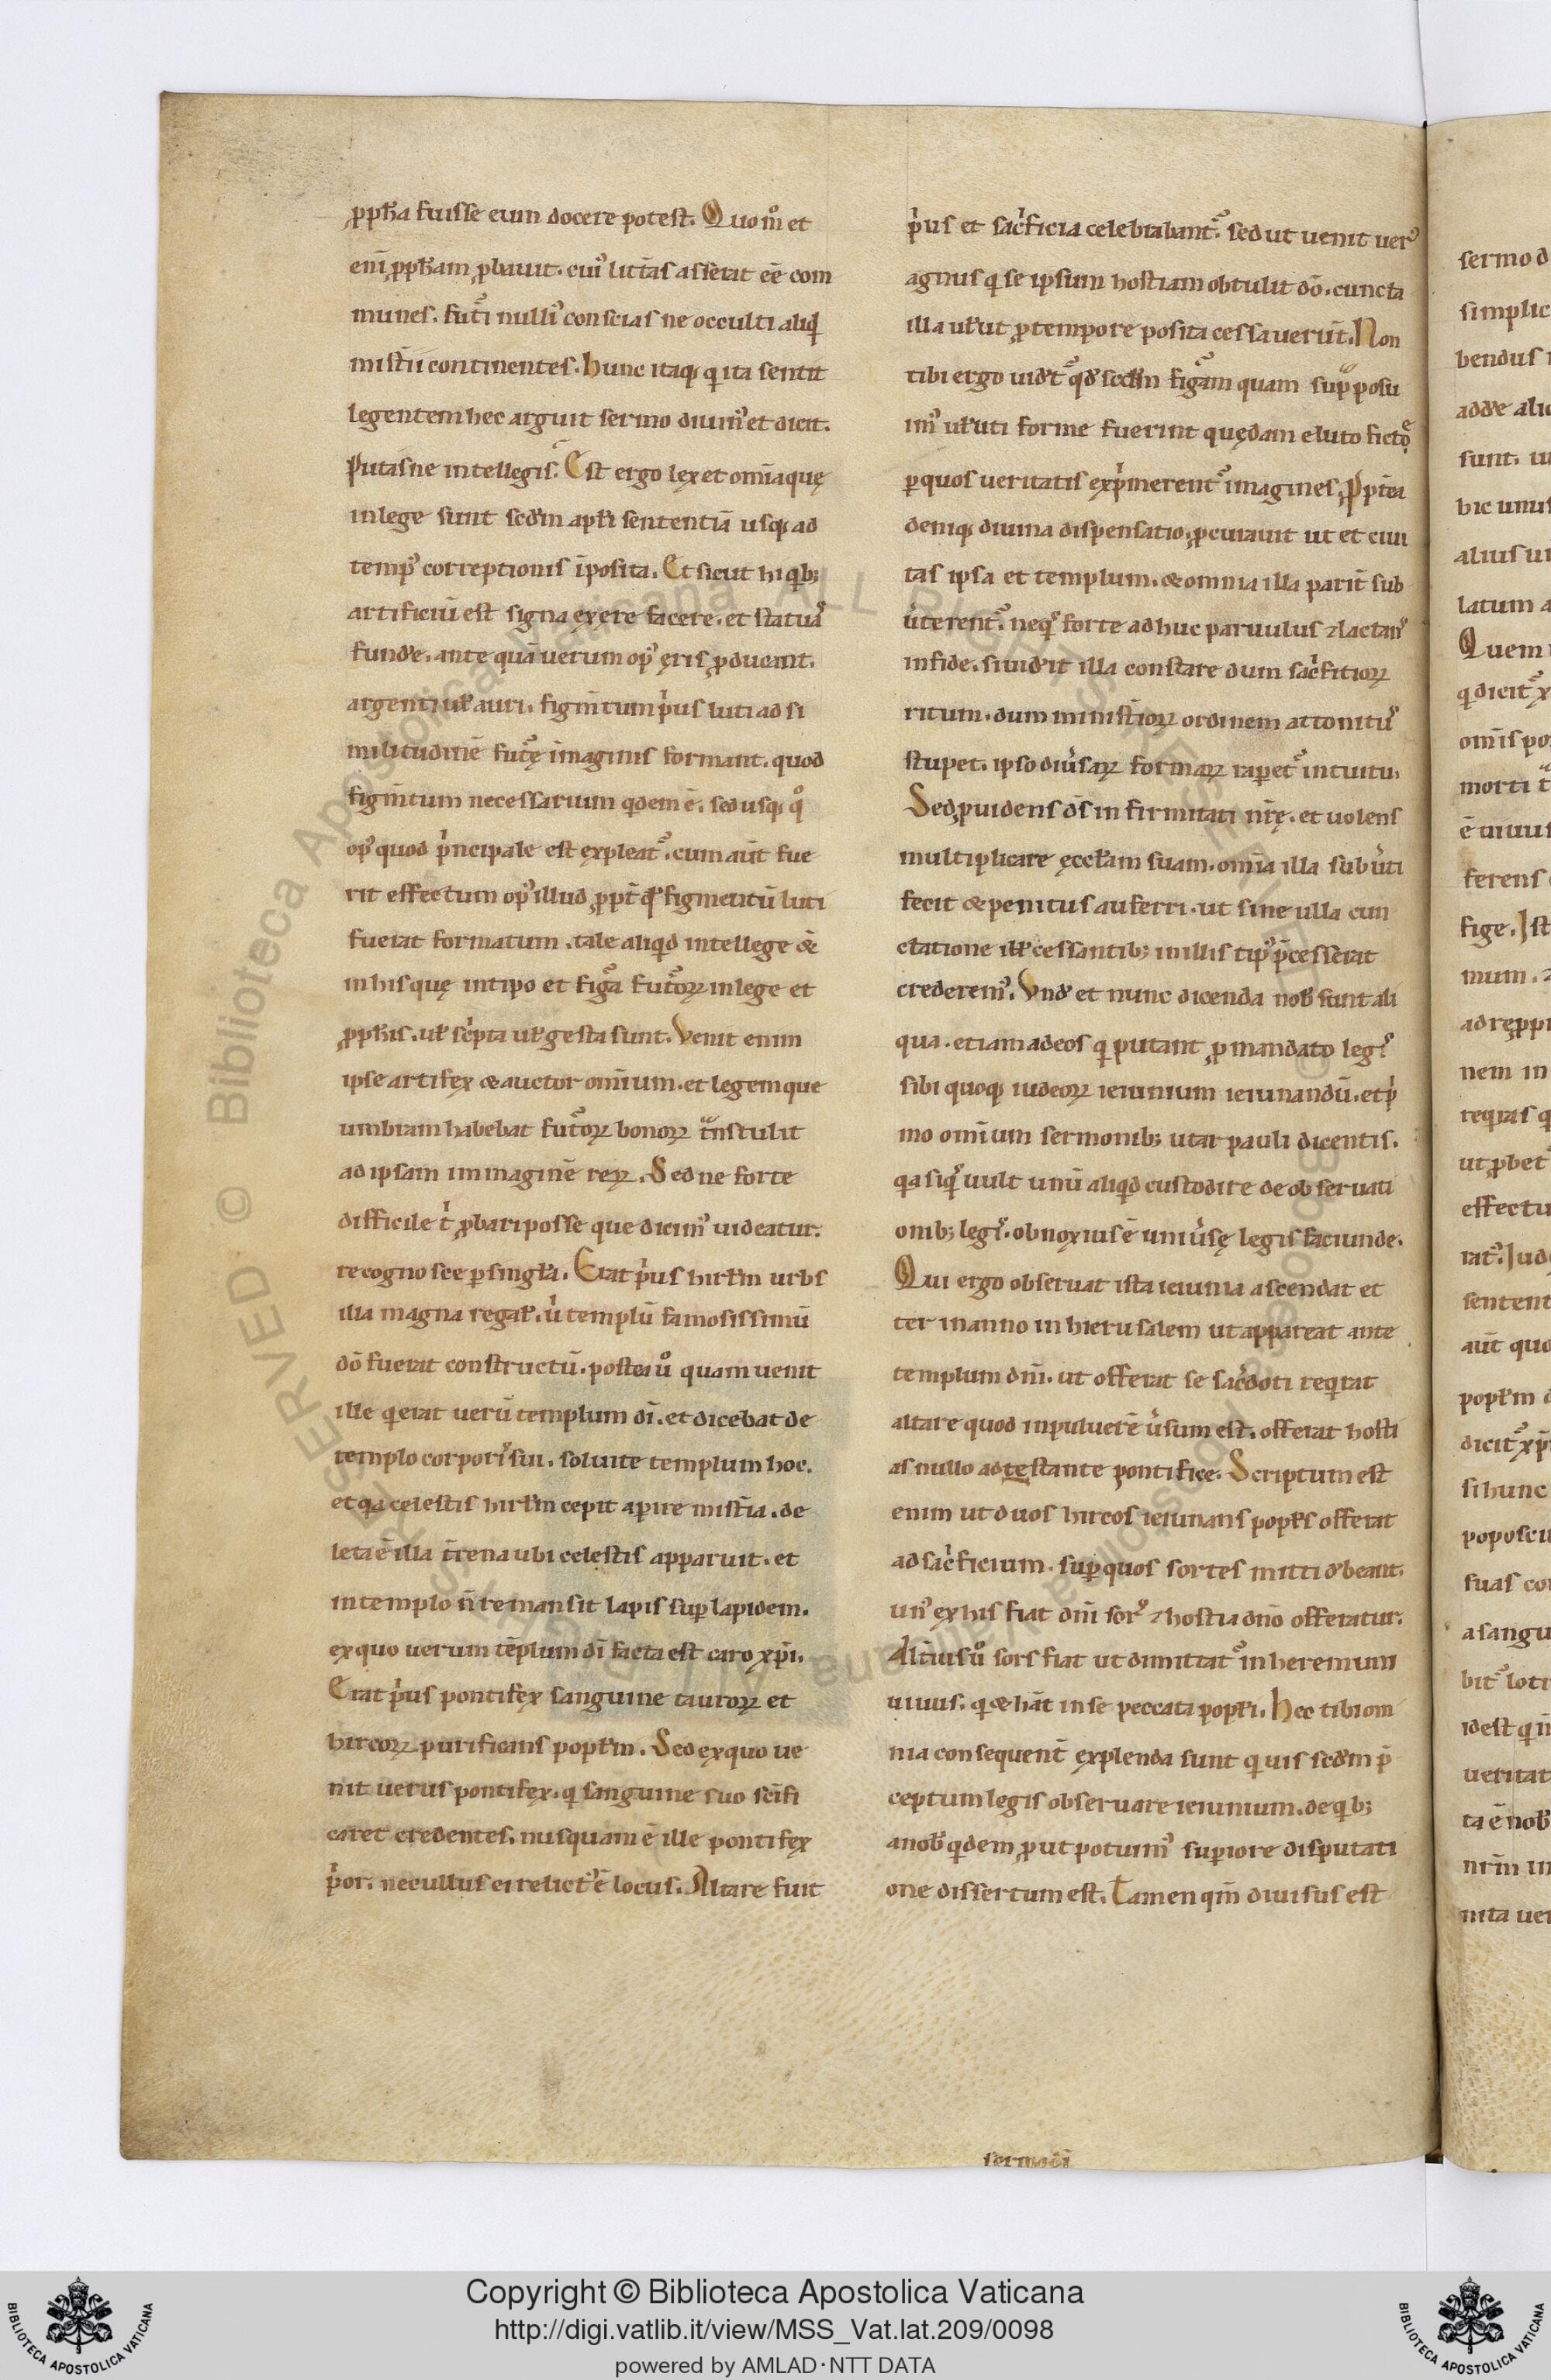 ꝓph̅a fuisse eum docere potest. Quom̊ et
eni̅ ꝓph̅am ꝓbauit. cui᾿ litt̅as asserat ee̅ com
munes. fut̅i nulli᾿ conscias ne occulti aliqͥ
mist̅ii continentes. hunc itaq; qͥ ita sentit
legentem hec arguit sermo diuin᾿ et dicit.
Putasne intellegis. Est ergo lex et om̅ia quę
in lege sunt scd̅m apl̅i sententia̅ usq; ad
temp᾿ correptionis i̅posita. Et sicut hi qͥb;
artificiu̅ est signa ex ere facere. et statua᾿
funde̅. ante qua̅ uerum op᾿ ęris ꝓducant.
argenti ul̅ auri. figm̅tum pͥus luti ad si
militudine̅ fut᾿ę imaginis formant. quod
figm̅tum necessarium qͥdem e̅. sed usq; qͦ
op᾿ quod pͥncipale est expleat᾿. cum aut̅ fue
rit effectum op᾿ illud ꝓpt̅ qd̅ figmentu̅ luti
fuerat formatum. tale aliqͥd intellege &
in his quę in tipo et figᷓa futoꝝ in lege et
ꝓph̅is. ul̅ scͥpta ul̅ gesta sunt. Venit enim
ipse artifex & auctor om̅ium. et legem que
umbram habebat futoꝝ bonoꝝ tᷓnstulit
ad ipsam immagine̅ reꝝ. Sed ne forte
difficile tͥ ꝓbari posse que dicim᾿ uideatur.
recognosce ꝑ singl̅a. Erat pͥus hirl̅m urbs
illa magna regal̅. uͥ templu̅ famosissimu̅
do̅ fuerat constructu̅. postea uͦ quam uenit
ille qͥ erat ueru̅ templum di̅. et dicebat de
templo corpor᾿ sui. soluite templum hoc.
et qͥa celestis hirl̅m cepit aꝑire mist̅ia. de
leta e̅ illa t̅rena ubi celestis apparuit. et
in templo n̅ remansit lapis suꝑ lapidem.
ex quo uerum te̅plum di̅ facta est caro xp̅i.
Erat pͥus pontifex sanguine tauroꝝ et
hircoꝝ purificans popl̅m. Sed ex quo ue
nit uerus pontifex. qͥ sanguine suo sci̅fi
caret credentes. nusquam e̅ ille pontifex
pͥor. nec ullus ei relict᾿ e̅ locus. Altare fuit
pͥus et sacͥficia celebrabant᾿. sed ut uenit uer᾿
agnus qͥ se ipsum hostiam obtulit do̅. cuncta
illa ul̅ut ꝓ tempore posita cessaueru̅t. Non
tibi ergo uidet᾿ qd̅ scd̅m figᷓam quam supᷓ posu
im᾿ ul̅uti forme fuerint quędam e luto fictę
ꝑ quos ueritatis expͥmerent᾿ imagines. Ꝓpt̅ea
deniq; diuina dispensatio ꝓcurauit ut et ciui
tas ipsa et templum. & omnia illa parit̅ sub
uͥterent᾿. neqͥs forte adhuc paruulus ⁊ lactan᾿
in fide. si uid̅it illa constare dum sacͥfitioꝝ
ritum. dum minist̅ioꝝ ordinem attonitu᾿
stupet. ipso diuͥsaꝝ formaꝝ raꝑet᾿ intuitu.
Sed ꝓuidens ds̅ infirmitati nr̅ę. et uolens
multiplicare ęccl̅am suam. om̅ia illa subuͥti
fecit & penitus auferri. ut sine ulla cun
ctatione ill̅ cessantib; in illis tip᾿ p̅cesserat
crederem᾿. Vnd̅ et nunc dicenda nob̅ sunt ali
qua. etiam ad eos qͥ putant ꝓ mandato leg᾿
sibi quoq; iudeoꝝ ieiunium ieiunandu̅. et pͥ
mo omnium sermonib; utar pauli dicentis.
qͥa siqͥs uult unu̅ aliqͥd custodire de obseruati
onib; leg᾿. obnoxius e̅ uniuͥsę legis faciunde.
Qui ergo obseruat ista ieiunia ascendat et
ter in anno in hierusalem ut appareat ante
templum dn̅i. ut offerat se sacͥdoti reqͥrat
altare quod in puluere̅ uͥsum est. offerat hosti
as nullo adtestante pontifice. Scriptum est
enim ut duos hircos ieiunans popl̅s offerat
ad sacͥficium. suꝑ quos sortes mitti debeant.
un᾿ ex his fiat dn̅i sor᾿ ⁊ hostia dn̅o offeratur.
Alt̅ius uͦ sors fiat ut dimittat᾿ in heremum
uiuus. qͥ & hab̅at in se peccata popl̅i. Hec tibi om
nia consequent̅ explenda sunt qͥ uis scd̅m p̅
ceptum legis obseruare ieiunium. de qͥb;
a nob̅ qͥdem ꝓut potuim᾿ suꝑiore disputati
one dissertum est. Tamen qm̅ diuisus est
Copyright © Biblioteca Apostolica Vaticana
http://digi.vatlib.it/view/MSS_Vat.lat.209/0098
powered by AMLAD·NTT DATA